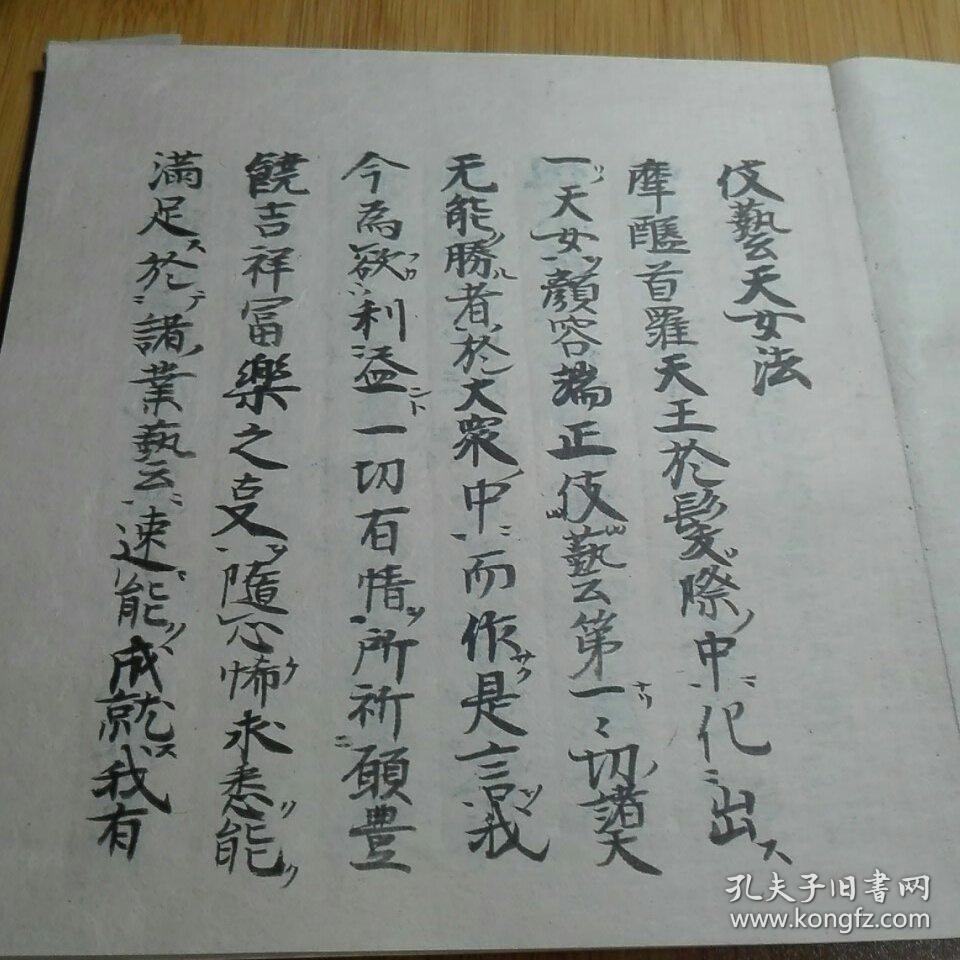 伎藝天女法
摩醯首羅天王於髮際中化出
一天女顏容端正伎藝第一〻切諸天
无能勝者於大眾中而作是言我
今為欲利益一切有情所祈願豊
饒吉祥冨樂之㕝隨心怖求悉能
滿足於諸業藝速能成就我有
孔夫子旧书网
www.kongfz.com